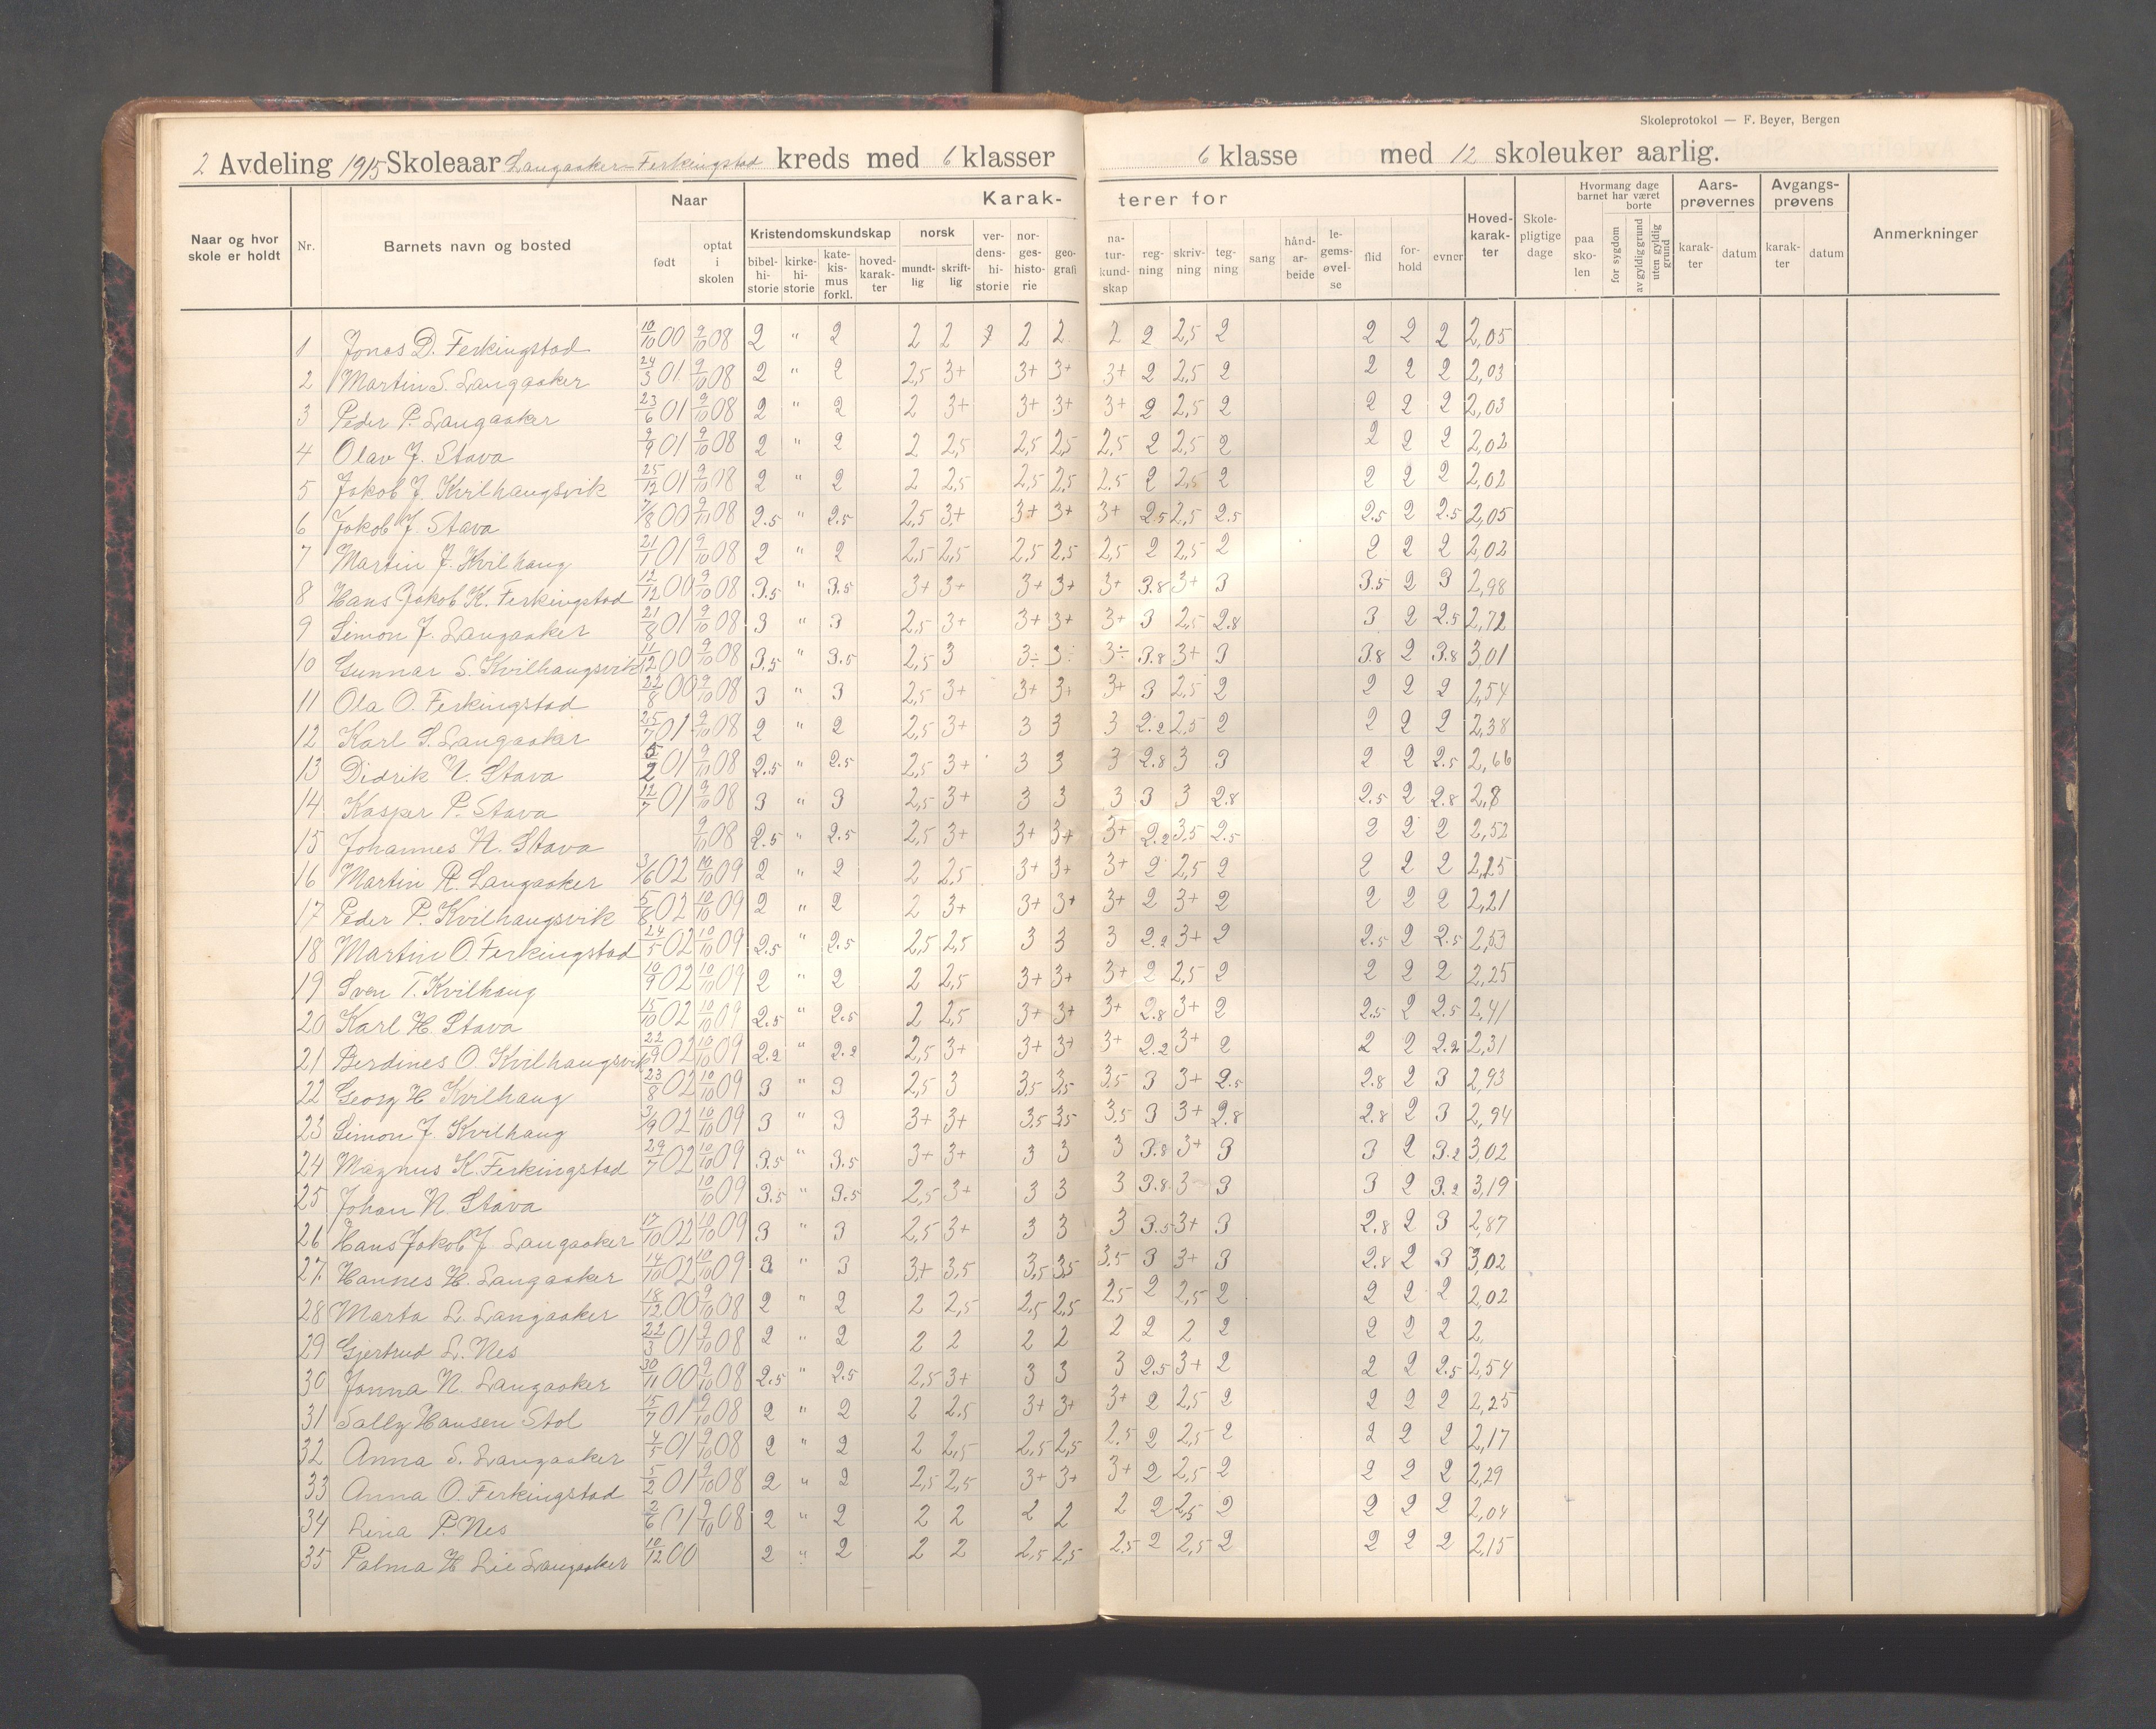 Skoleprotokol — F. Beyer, Bergen
2 Avdeling 1915 Skoleaar Langaaker-Ferkingstad kreds med 6 klasser 6 klasse med 12 skoleuker aarlig.
Naar og hvor skole er holdt Nr. Barnets navn og bosted Naar født optat i skolen Karakterer for Kristendomskundskap bibelhistorie kirkehistorie katekismus forkl. hovedkarakter norsk mundtlig skriftlig verdenshistorie norgeshistorie geografi naturkundskap regning skrivning tegning sang håndarbeide legemsøvelse flid forhold evner Hovedkarakter Skolepligtige dage Hvormang dage barnet har været borte paa skolen for sygdom av gyldig grund uten gyldig grund Aarsprøvernes karakter datum Avgangsprøvens karakter datum Anmerkninger
1 Jonas D. Ferkingstad 10/10 00 9/10 08 2 " 2 2 2 2 2 2 2 2,5 2 2 2 2 2,05
2 Martin S. Langaaker 24/3 01 9/10 08 2 " 2 2,5 3+ 3+ 3+ 3+ 2 2,5 2 2 2 2 2,03
3 Peder P. Langaaker 23/6 01 9/10 08 2 " 2 2 3+ 3+ 3+ 3+ 2 2,5 2 2 2 2 2,03
4 Olav J. Stava 9/9 01 9/10 08 2 " 2 2 2,5 2,5 2,5 2,5 2 2,5 2 2 2 2 2,02
5 Jakob J. Kvilhaugsvik 25/12 01 9/10 08 2 " 2 2 2,5 2,5 2,5 2.5 2 2,5 2 2 2 2 2,02
6 Jakob J. Stava 7/8 00 9/10 08 2.5 " 2.5 2,5 3+ 3+ 3+ 3+ 2.5 2,5 2.5 2.5 2 2.5 2,05
7 Martin J. Kvilhaug 21/1 01 9/10 08 2 " 2 2,5 2,5 2,5 2,5 2,5 2 2,5 2 2 2 2 2,02
8 Hans Jakob K. Ferkingstad 12/12 00 9/10 08 3.5 " 3.5 3+ 3+ 3+ 3+ 3+ 3.8 3+ 3 3.5 2 3 2,98
9 Simon J. Langaaker 21/8 01 9/10 08 3 " 3 2,5 3+ 3+ 3+ 3+ 3 2,5 2.8 3 2 2.5 2,72
10 Gunnar S. Kvilhaugsvik 11/12 00 9/10 08 3.5 " 3.5 2,5 3 3÷ 3÷ 3÷ 3.8 3+ 3 3.8 2 3.8 3,01
11 Ola O. Ferkingstad 22/8 00 9/10 08 3 " 3 2,5 3+ 3+ 3+ 3+ 3 2,5 2 2 2 2 2,54
12 Karl S. Langaaker 25/7 01 9/10 08 2 " 2 2,5 3+ 3 3 3 2.2 2,5 2 2 2 2 2,38
13 Didrik N. Stava 5/2 01 9/10 08 2.5 " 2.5 2,5 3+ 3 3 3 2.8 3 3 2 2 2.5 2,66
14 Kasper P. Stava 12/7 01 9/10 08 3 " 3 2,5 3+ 3 3 3 3 3 2.8 2.5 2 2.8 2,8
15 Johannes N. Stava 9/10 08 2.5 " 2.5 2,5 3+ 3+ 3+ 3+ 2.2 3.5 2.5 2 2 2 2,52
16 Martin R. Langaaker 3/6 02 10/10 09 2 " 2 2 2,5 3+ 3+ 3+ 2 2,5 2 2 2 2 2,25
17 Peder P. Kvilhaugsvik 5/8 02 10/10 09 2 " 2 2 3+ 3+ 3+ 3+ 2 3+ 2 2 2 2 2,21
18 Martin O. Ferkingstad 24/5 02 10/10 09 2.5 " 2.5 2,5 2,5 3 3 3 2.2 3+ 2 2.5 2 2.5 2,53
19 Sven T. Kvilhaug 10/9 02 10/10 09 2 " 2 2 2,5 3+ 3+ 3+ 2 2,5 2 2 2 2 2,25
20 Karl H. Stava 15/10 02 10/10 09 2.5 " 2.5 2 2,5 3+ 3+ 3+ 2.8 3+ 2 2.5 2 2.5 2,41
21 Berdines O. Kvilhaugsvik 22/9 02 10/10 09 2.2 " 2.2 2,5 3+ 3+ 3+ 3+ 2.2 3+ 2 2 2 2.2 2,31
22 Georg H Kvilhaug 23/8 02 10/10 09 3 " 3 2,5 3 3,5 3,5 3,5 3 3+ 2.5 2.8 2 3 2,93
23 Simon J. Kvilhaug 3/9 02 10/10 09 3 " 3 3+ 3+ 3.5 3.5 3.5 3 3+ 2.8 2.8 2 3 2,94
24 Magnus K. Ferkingstad 29/7 02 10/10 09 3.5 " 3.5 3+ 3+ 3 3 3 3.8 3+ 3 3 2 3.2 3,02
25 Johan N. Stava 10/10 09 3.5 " 3.5 2,5 3+ 3 3 3 3.8 3 3 3 2 3.2 3,19
26 Hans Jakob J. Langaaker 17/10 02 10/10 09 3 " 3 2,5 3+ 3 3 3 3.5 3+ 3 2.8 2 3 2,87
27. Hannes H. Langaaker 14/10 02 10/10 09 3 " 3 3+ 3,5 3,5 3,5 3,5 3 3+ 3 2.8 2 3 3,02
28 Marta L. Langaaker 18/12 00 9/10 08 2 " 2 2 2,5 2,5 2,5 2,5 2 2,5 2 2 2 2 2,02
29 Gjertrud L. Nes 22/3 01 9/10 08 2 " 2 2 2 2 2 2 2 2 2 2 2 2 2,
30 Janna N. Langaaker 30/11 00 9/10 08 2.5 " 2.5 2,5 3+ 3 3 3 2.5 3+ 2 2 2 2.5 2,54
31 Sally Hansen Stol 15/7 01 9/10 08 2 " 2 2 2.5 3+ 3+ 3+ 2 2,5 2 2 2 2 2,25
32 Anna S. Langaaker 4/5 01 9/10 08 2 " 2 2 2,5 2,5 2,5 2.5 2 2,5 2 2 2 2 2,17
33 Anna O. Ferkingstad 5/2 01 9/10 08 2 " 2 2,5 2,5 3+ 3+ 3+ 2 2,5 2 2 2 2 2,29
34 Lina P. Nes 2/6 01 9/10 08 2 " 2 2 2 2 2 2 2 2,5 2 2 2 2 2,04
35 Palma H Lie Langaaker 10/12 00 2 " 2 2 2 2,5 2,5 2.5 2 2,5 2 2 2 2 2,15